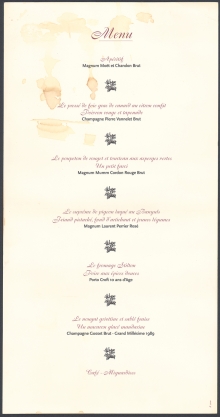 Menu
Apéritif
Magnum Moët et Chandon Brut
Le pressé de foie gras de canard au citron confit
Poivron rouge et tapenade
Champagne Pierre Vannelet Brut
Le poupeton de rouget et tourteau aux asperges vertes
Un petit farci
Magnum Mumm Cordon Rouge Brut
Le suprême de pigeon laqué au Banyuls
Friand pintade, fond d'artichaut et jeunes légumes
Magnum Laurent Perrier Rosé
Le fromage Stilton
Poire aux épices douces
Porto Croft 10 ans d'âge
Le nougat griottine et sablé fraise
Un macaron glacé mandarine
Champagne Gosset Brut - Grand Millésime 1989
Café - Mignardises